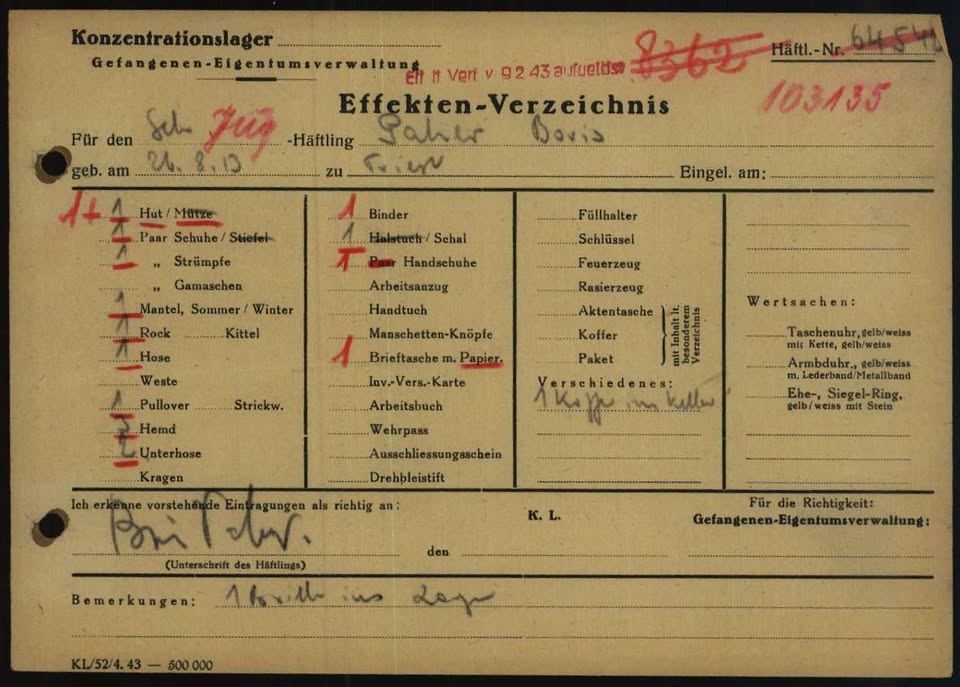 Konzentrationslager
Gefangenen-Eigentumsverwaltung
8362
Häftl.-Nr. 64548
Eff. lt Verf v 9 2 43 aufgelöst
103135
Effekten-Verzeichnis
Für den Sch Jug -Häftling Pahor Boris
geb. am 26. 8. 13 zu Triest Eingel. am:
1+ 1 Hut / Mütze
1 Paar Schuhe / Stiefel
1 „ Strümpfe
„ Gamaschen
1 Mantel, Sommer / Winter
1 Rock Kittel
1 Hose
Weste
1 Pullover Strickw.
3 Hemd
2 Unterhose
Kragen
1 Binder
1 Halstuch / Schal
1 Paar Handschuhe
Arbeitsanzug
Handtuch
Manschetten-Knöpfe
1 Brieftasche m. Papier.
Inv.-Vers.-Karte
Arbeitsbuch
Wehrpass
Ausschliessungsschein
Drehbleistift
Füllhalter
Schlüssel
Feuerzeug
Rasierzeug
Aktentasche
Koffer
Paket
mit Inhalt lt.
besonderem
Verzeichnis
Verschiedenes:
1 Koffer im Keller
Wertsachen:
Taschenuhr, gelb/weiss
mit Kette, gelb/weiss
Armbduhr., gelb/weiss
m. Lederband/Metallband
Ehe-, Siegel-Ring,
gelb/weiss mit Stein
Ich erkenne vorstehende Eintragungen als richtig an:
K. L.
Für die Richtigkeit:
Gefangenen-Eigentumsverwaltung:
den
(Unterschrift des Häftlings)
Bemerkungen: 1 Brille ins Lager
KL/52/4. 43 — 500 000